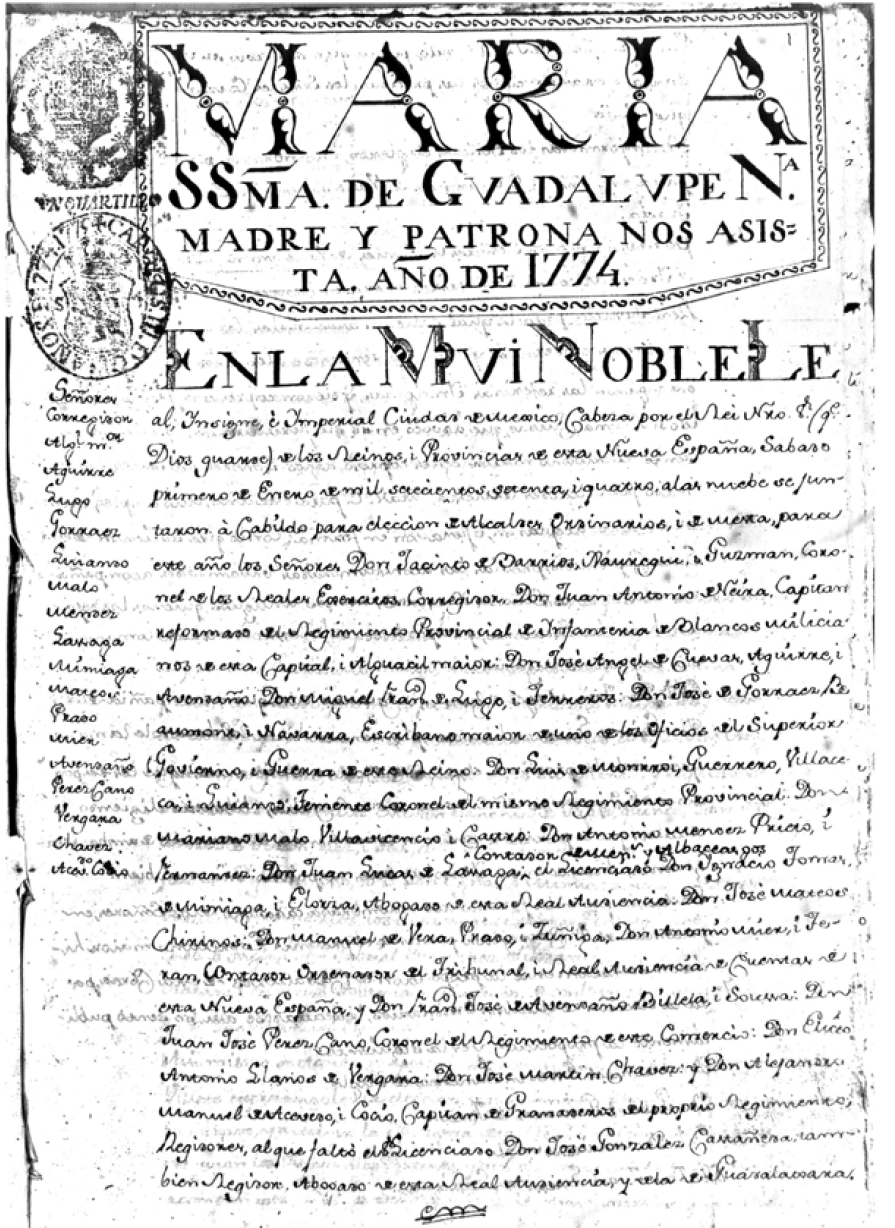 MARIA
SSMA. DE GVADALVPE Nᴬ.
MADRE Y PATRONA NOS ASIS=
TA, AÑO DE 1774.
VN QUARTILLO
CAROLUS III D G
EN LA MVI NOBLE LE
Señores
Corregidor
Algl. mor
Aguirre
Lugo
Gorraez
Luiando
Malo
Mendez
Lassaga
Mimiaga
Marcos
Prado
Mier
Avendaño
Perez Cano
Vergara
Chavez
Acevdo. Cosio
al, Insigne, è Imperial Ciudad de Mexico, Cabeza por el Rei Nro. Sr. (qe.
Dios guarde) de los Reinos, i Provincias de esta Nueva España, Sabado
primero de Enero de mil, setecientos setenta, i quatro, a las nuebe se jun-
taron à Cabildo para eleccion de Alcaldes Ordinarios, i de mesta, para
este año los Señores Don Jacinto de Barrios, Jauregui, Guzman, Coro-
nel de los Reales Exercitos, Corregidor. Don Juan Antonio de Neira, Capitan
reformado del Regimiento Provincial de Infanteria de Blancos Milicia-
nos de esta Capital, i Alguacil maior: Don José Angel de Cuevas, Aguirre, i
Avendaño: Don Miguel Franco. de Lugo, i Terreros: Don José de Gorraez, Be
aumont, i Navarra, Escribano maior de uno de los Oficios del Superior
Govierno, i Guerra de este Reino: Don Luis de Monrroi, Guerrero, Villase
ca, i Luiando, Teniente Coronel del mismo Regimiento Provincial. Don
Mariano Malo, Villavicencio i Castro: Don Antonio Mendez Prieto, i
Contador de Men.s y Albaceazgos
Fernandez: Don Juan Lucas de Lassaga, el Licenciado Don Ignacio Tomas,
de Mimiaga, i Elorza, Abogado de esta Real Audiencia: Don José Marcos
Chirinos: Don Manuel de Vera, Prado, i Zuñiga, Don Antonio Mier, i Te-
ran, Contador Ordenador del Tribunal, i Real Audiencia de Cuentas de
esta Nueva España, y Don Franco. José de Avendaño Billela, i Soussa: Don
Juan José Perez Cano, Coronel del Regimiento de este Comercio: Don Eliceo
Antonio Llanos de Vergara: Don José Martin Chavez: y Don Alejandro
Manuel de Acevedo, i Cosio, Capitan de Granaderos del proprio Regimiento,
Regidores, al que faltó el Licenciado Don José Gonzalez Castañeda, tam-
bien Regidor, Abogado de esta Real Audiencia, y de la de Guadalaxara.